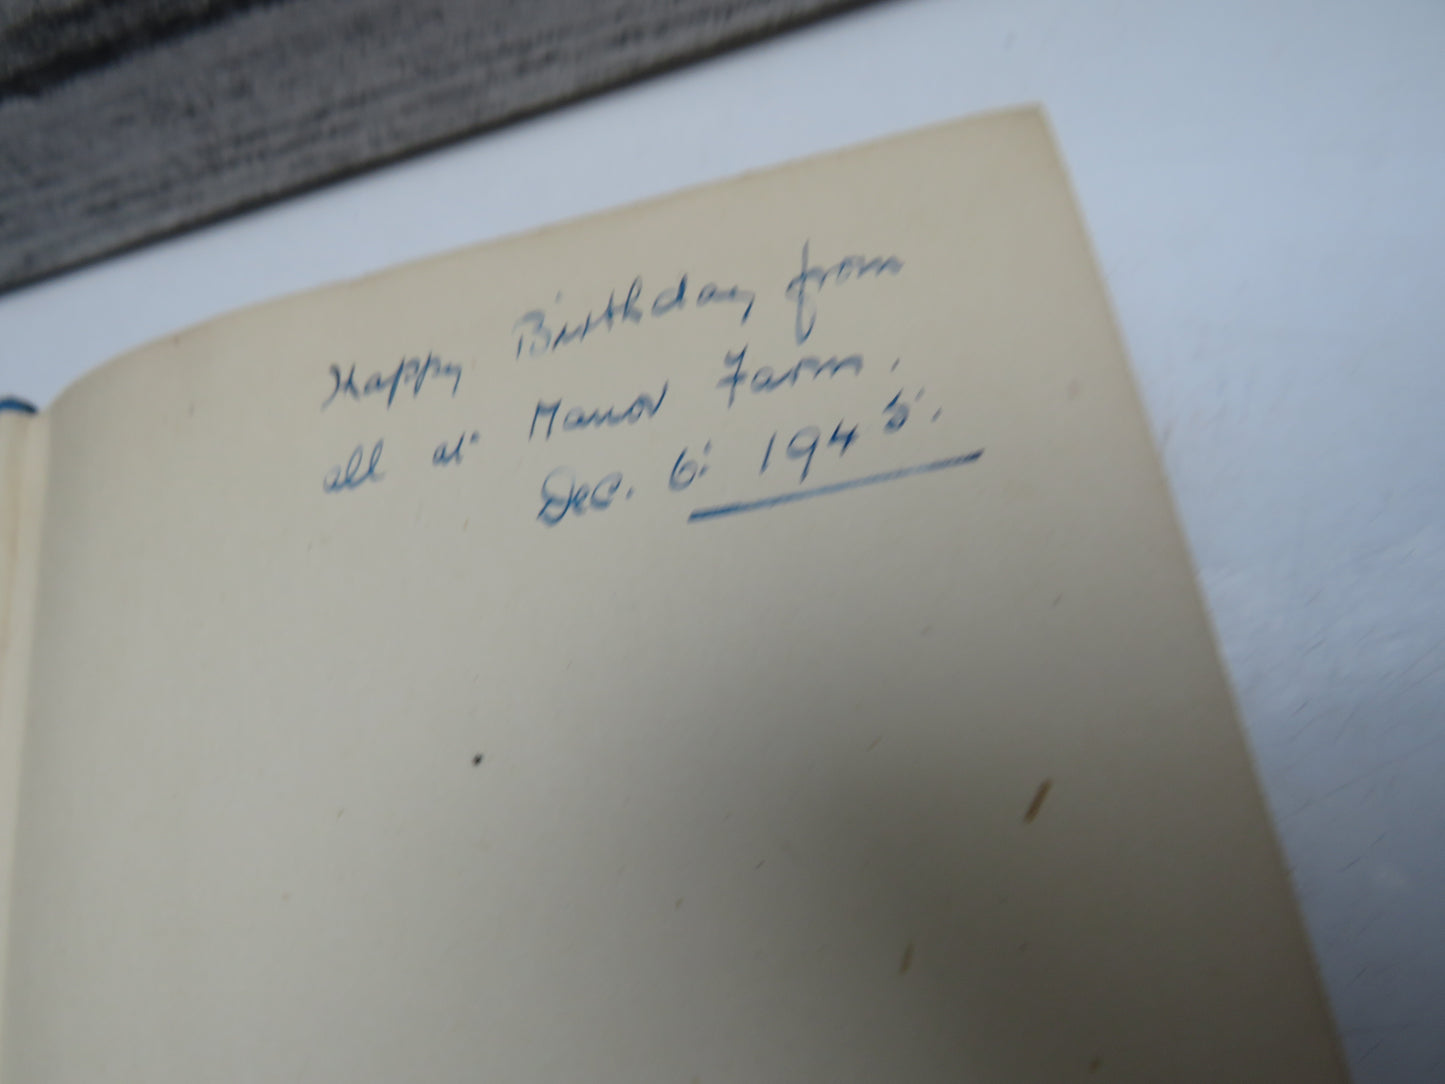 Happy Birthday from
all at Manor Farm.
Dec. 6: 1945.